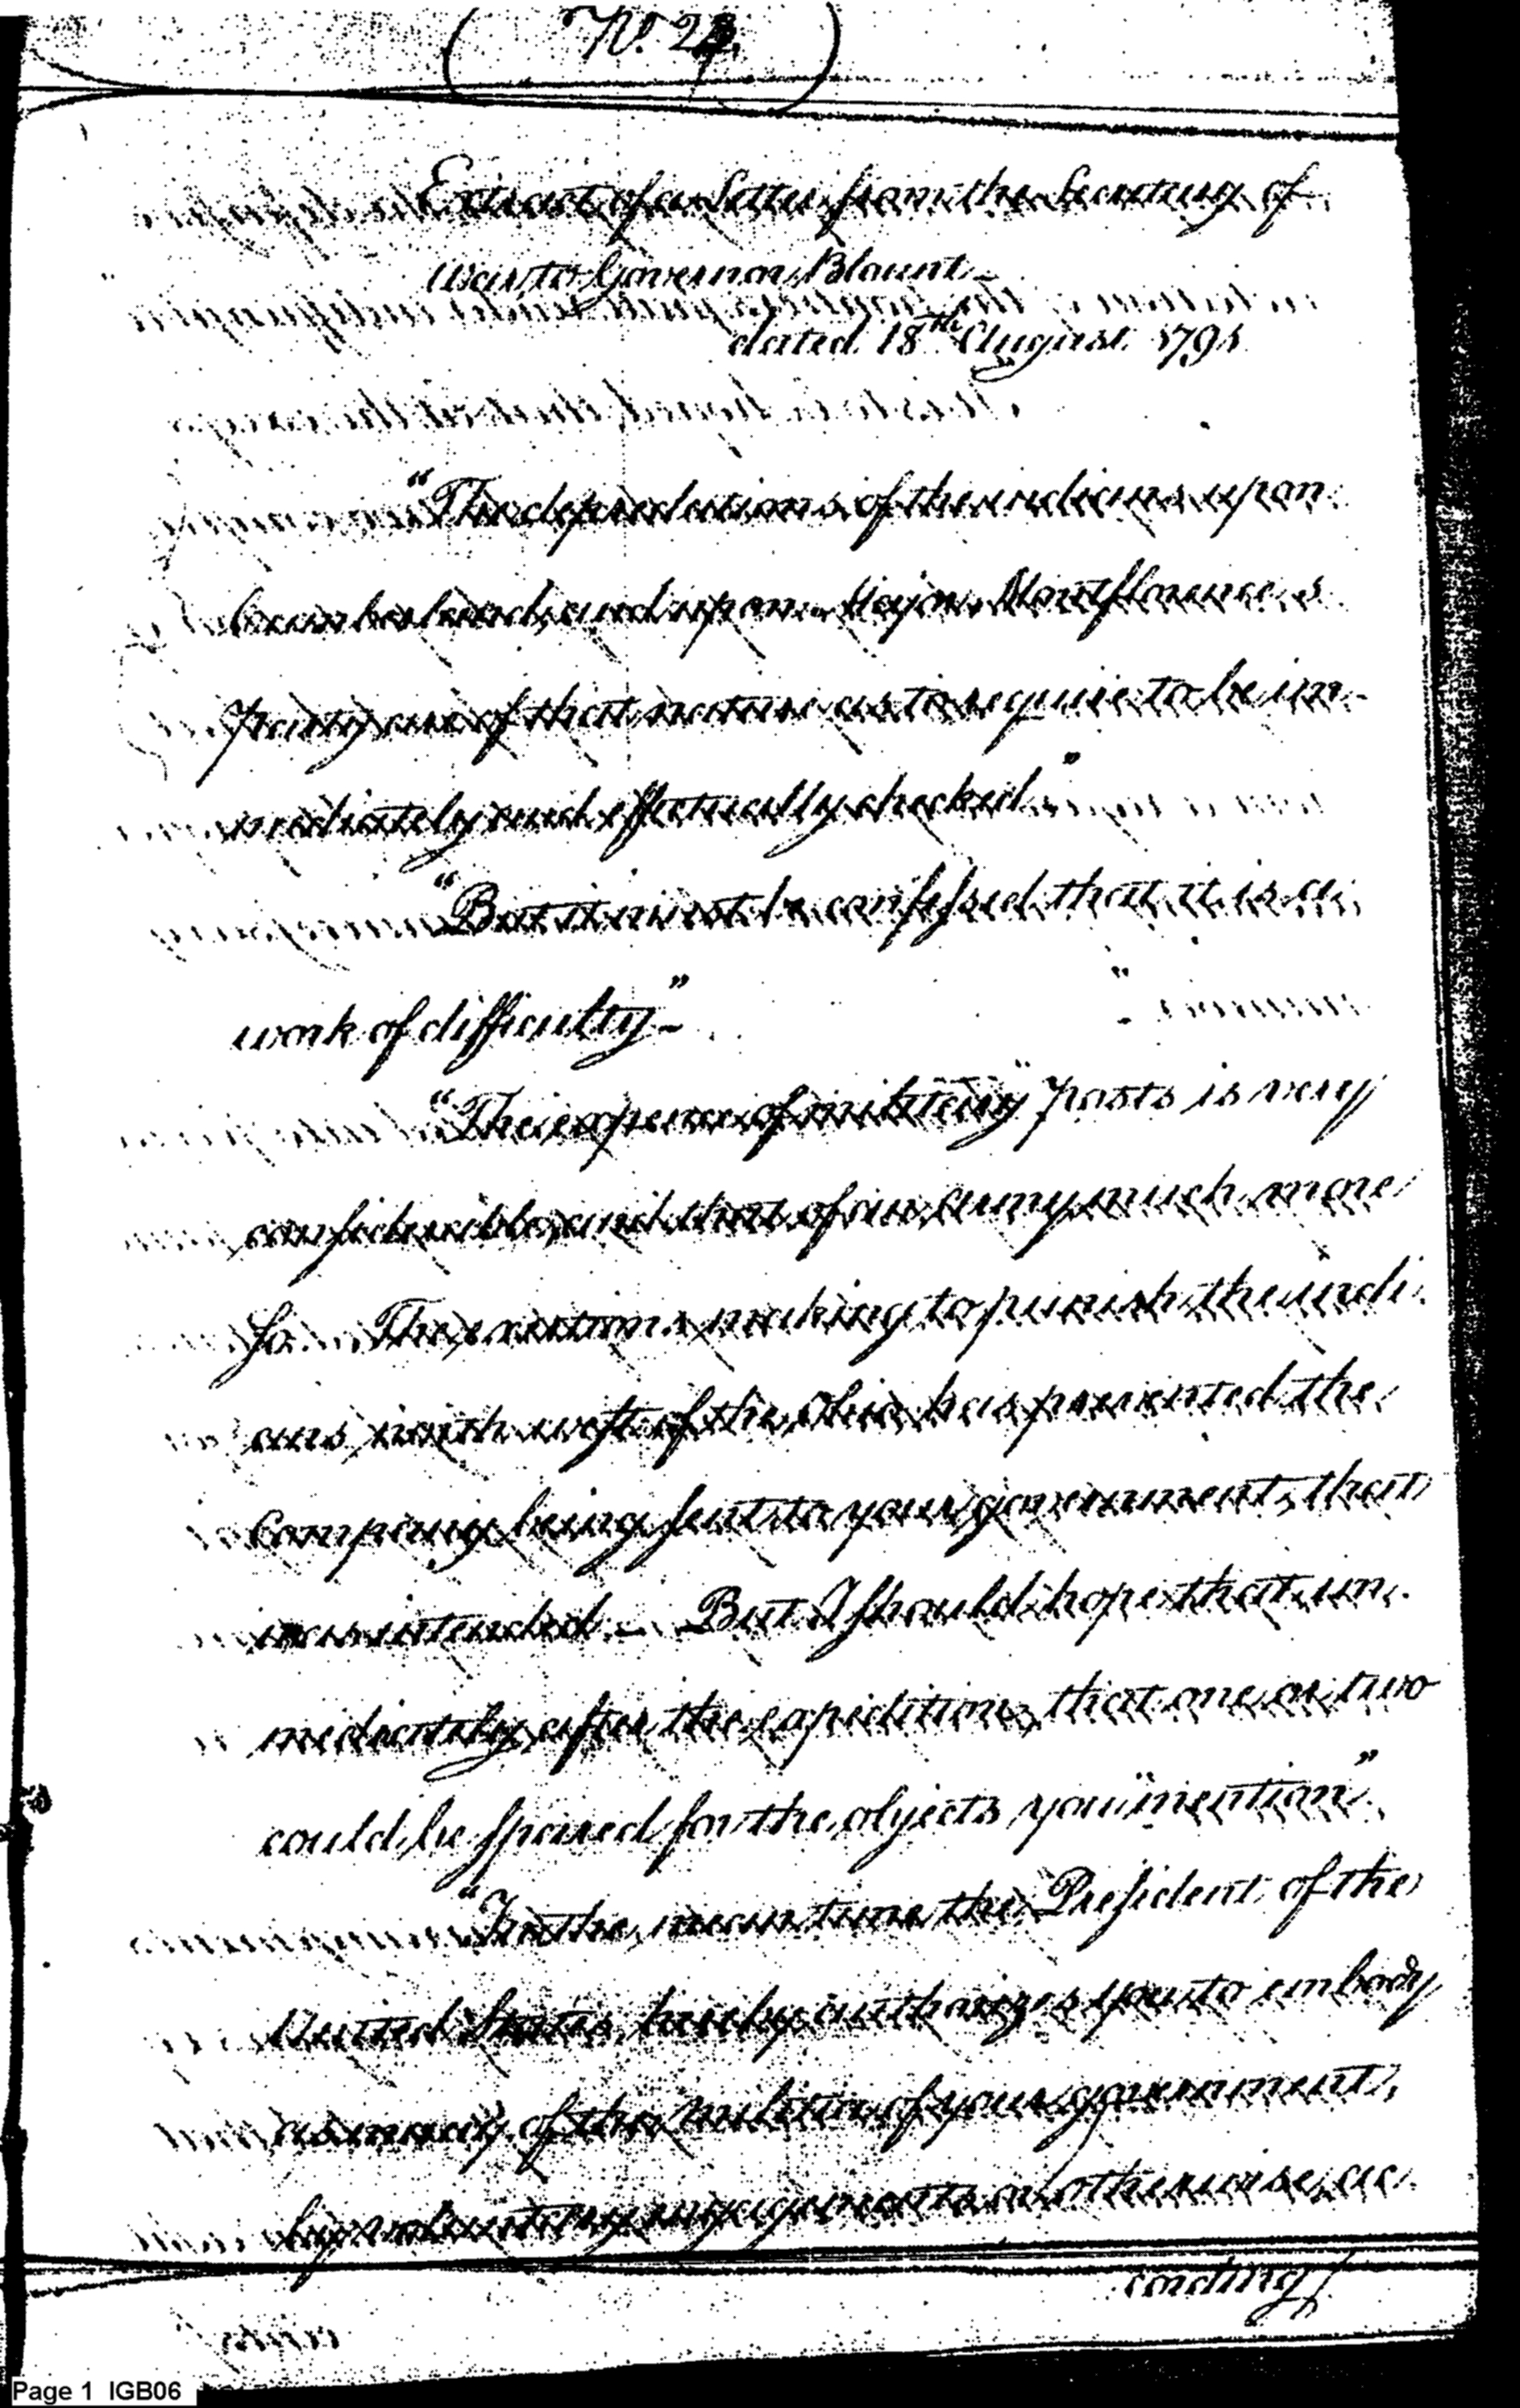 No. 23,
Extract of a Letter from the Secretary of
War, to Governor Blount –
dated 18th August 1791
"The depredations of the indians upon
Cumberland, and upon Major Montflorence's
party are of that nature as to require to be im-
mediately and effectually checked."
"But it must be confessed that it is a
work of difficulty" –
"The expence of military posts is very
considerable, and that of an army much more
so. The exertions making to punish the indi-
ans north west of the Ohio has prevented the
Company being sent to your government, that
was intended. – But I should hope that im-
mediately after the expedition, that one or two
could be spared for the objects you mention"
"In the mean time the President of the
United States, hereby authorizes you to embody
as many of the Militia of your government,
by voluntary engagements or otherwise, ac-
cording
Page 1 IGB06